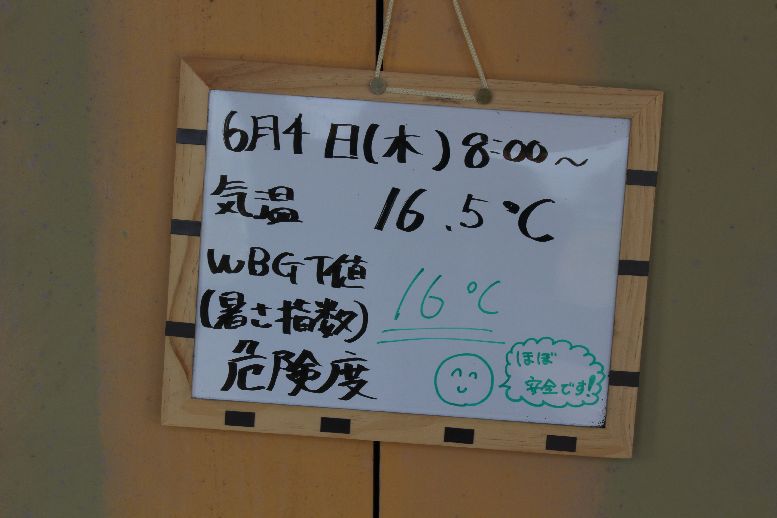 6月4日(木) 8:00～
気温 16.5℃
WBGT値
(暑さ指数) 16℃
危険度
ほぼ
安全です!